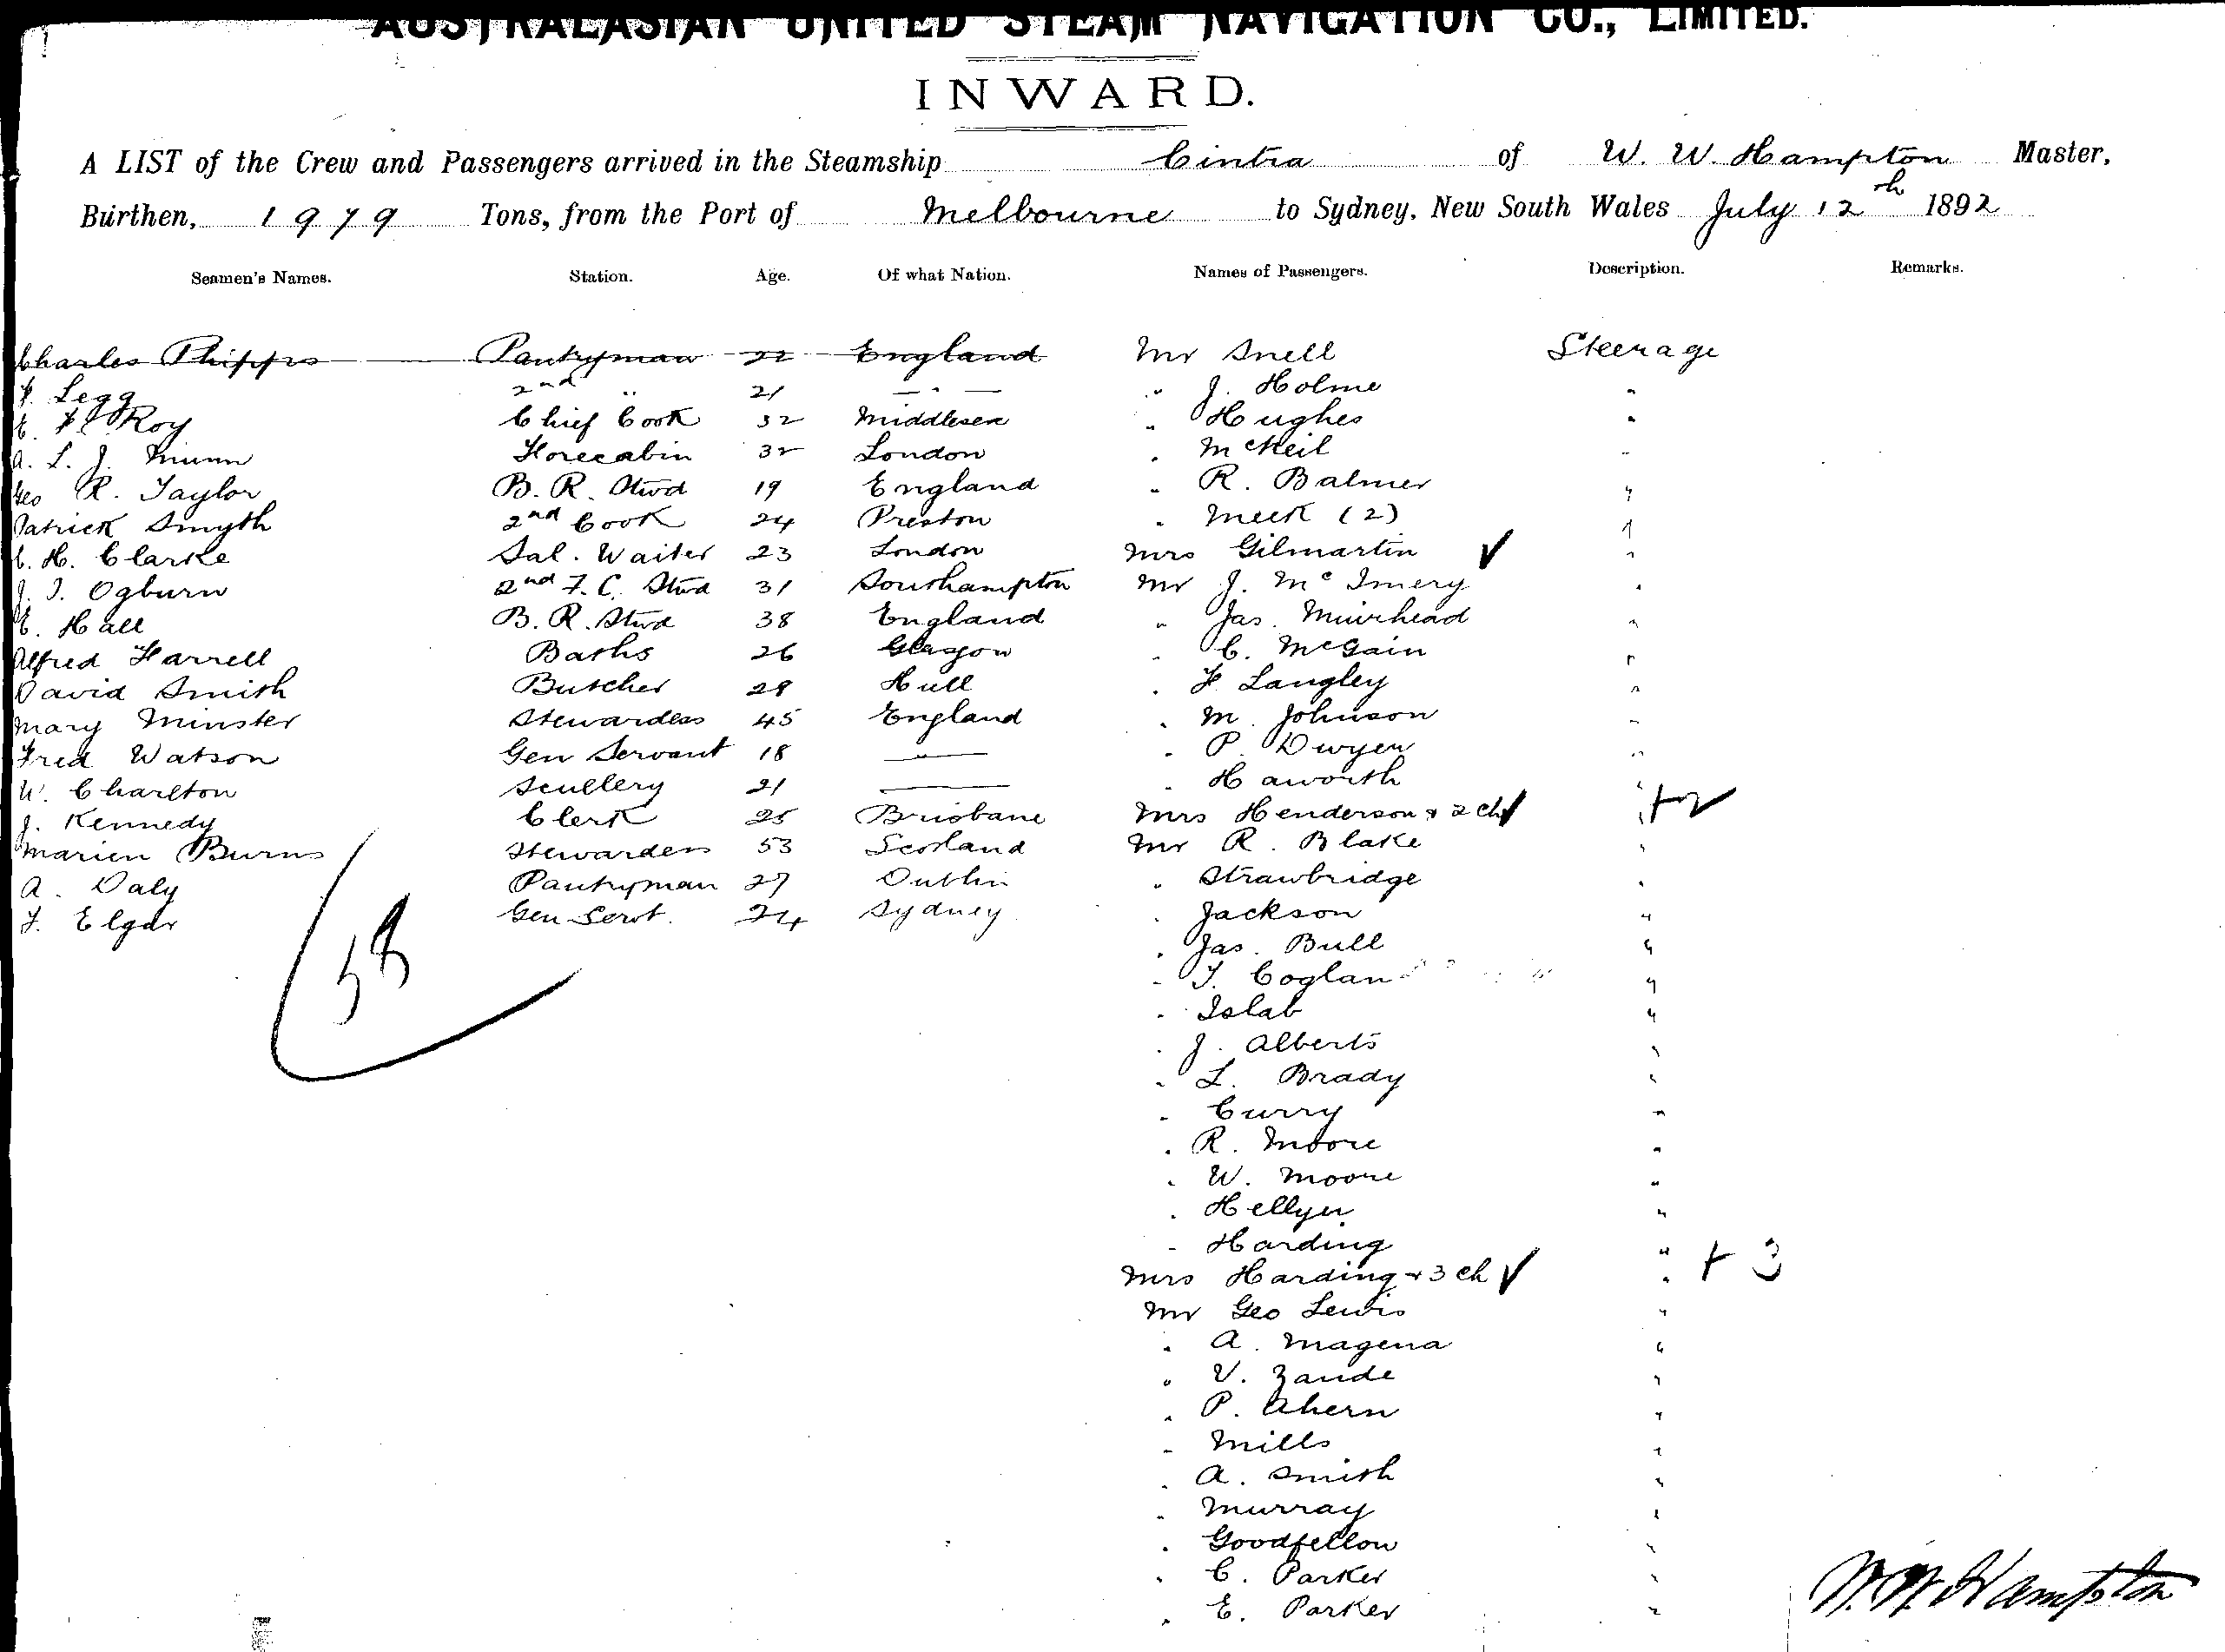 AUSTRALASIAN UNITED STEAM NAVIGATION CO., LIMITED.
INWARD.
A LIST of the Crew and Passengers arrived in the Steamship Cintra of W. W. Hampton Master,
Burthen, 1979 Tons, from the Port of Melbourne to Sydney, New South Wales July 12th 1892
Seamen's Names. Station. Age. Of what Nation. Names of Passengers. Description. Remarks.
Charles Phipps Pantryman 22 England Mr Snell Steerage
Legg 2nd " 21 — " — " J. Holme "
Roy Chief Cook 32 Middlesex " Hughes "
A. L. J. Munn Forecabin 32 London " McNeil "
Geo R. Taylor B. R. Stwd 19 England " R. Balmer "
Patrick Smyth 2nd Cook 24 Preston " Meek (2) "
C. H. Clarke Sal. Waiter 23 London Mrs Gilmartin ✓ "
J. J. Ogburn 2nd F. C. Stwd 31 Southampton Mr J. Mc Imery "
E. Hall B. R. Stwd 38 England " Jas. Muirhead "
Alfred Farrell Baths 26 Glasgow " C. McGain "
David Smith Butcher 28 Hull " F. Langley "
Mary Minster Stewardess 45 England " M. Johnson "
Fred Watson Gen Servant 18 — " — " P. Dwyer "
W. Charlton Scullery 21 — " Haworth "
J. Kennedy Clerk 25 Brisbane Mrs Henderson & 2 ch ✓ " +2
Marien Burns Stewardess 53 Scotland Mr R. Blake "
A. Daly Pantryman 27 Dublin " Strawbridge "
F. Elgar Gen Servt. 24 Sydney " Jackson "
58 " Jas. Bull "
" T. Coglan "
" Islab "
" J. Alberts "
" L. Brady "
" Curry "
" R. Moore "
" W. Moore "
" Hellyer "
" Harding "
Mrs Harding + 3 ch ✓ " + 3
Mr Geo Lewis "
" A. Magena "
" V. Zande "
" P. Ahern "
" Mills "
" A. Smith "
" Murray "
" Goodfellow "
" C. Parker "
" E. Parker "
W. W. Hampton